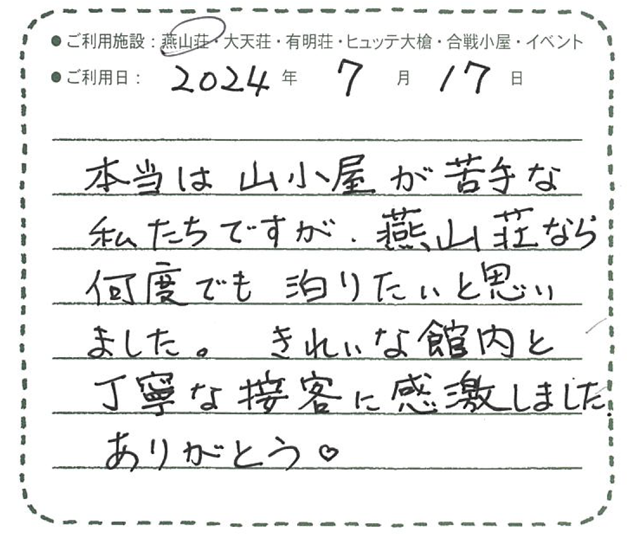 ●ご利用施設：燕山荘・大天荘・有明荘・ヒュッテ大槍・合戦小屋・イベント
●ご利用日： 2024 年 7 月 17 日
本当は 山小屋が苦手な
私たちですが、燕山荘なら
何度でも 泊りたいと思い
ました。 きれいな館内と
丁寧な接客に感激しました。
ありがとう♡